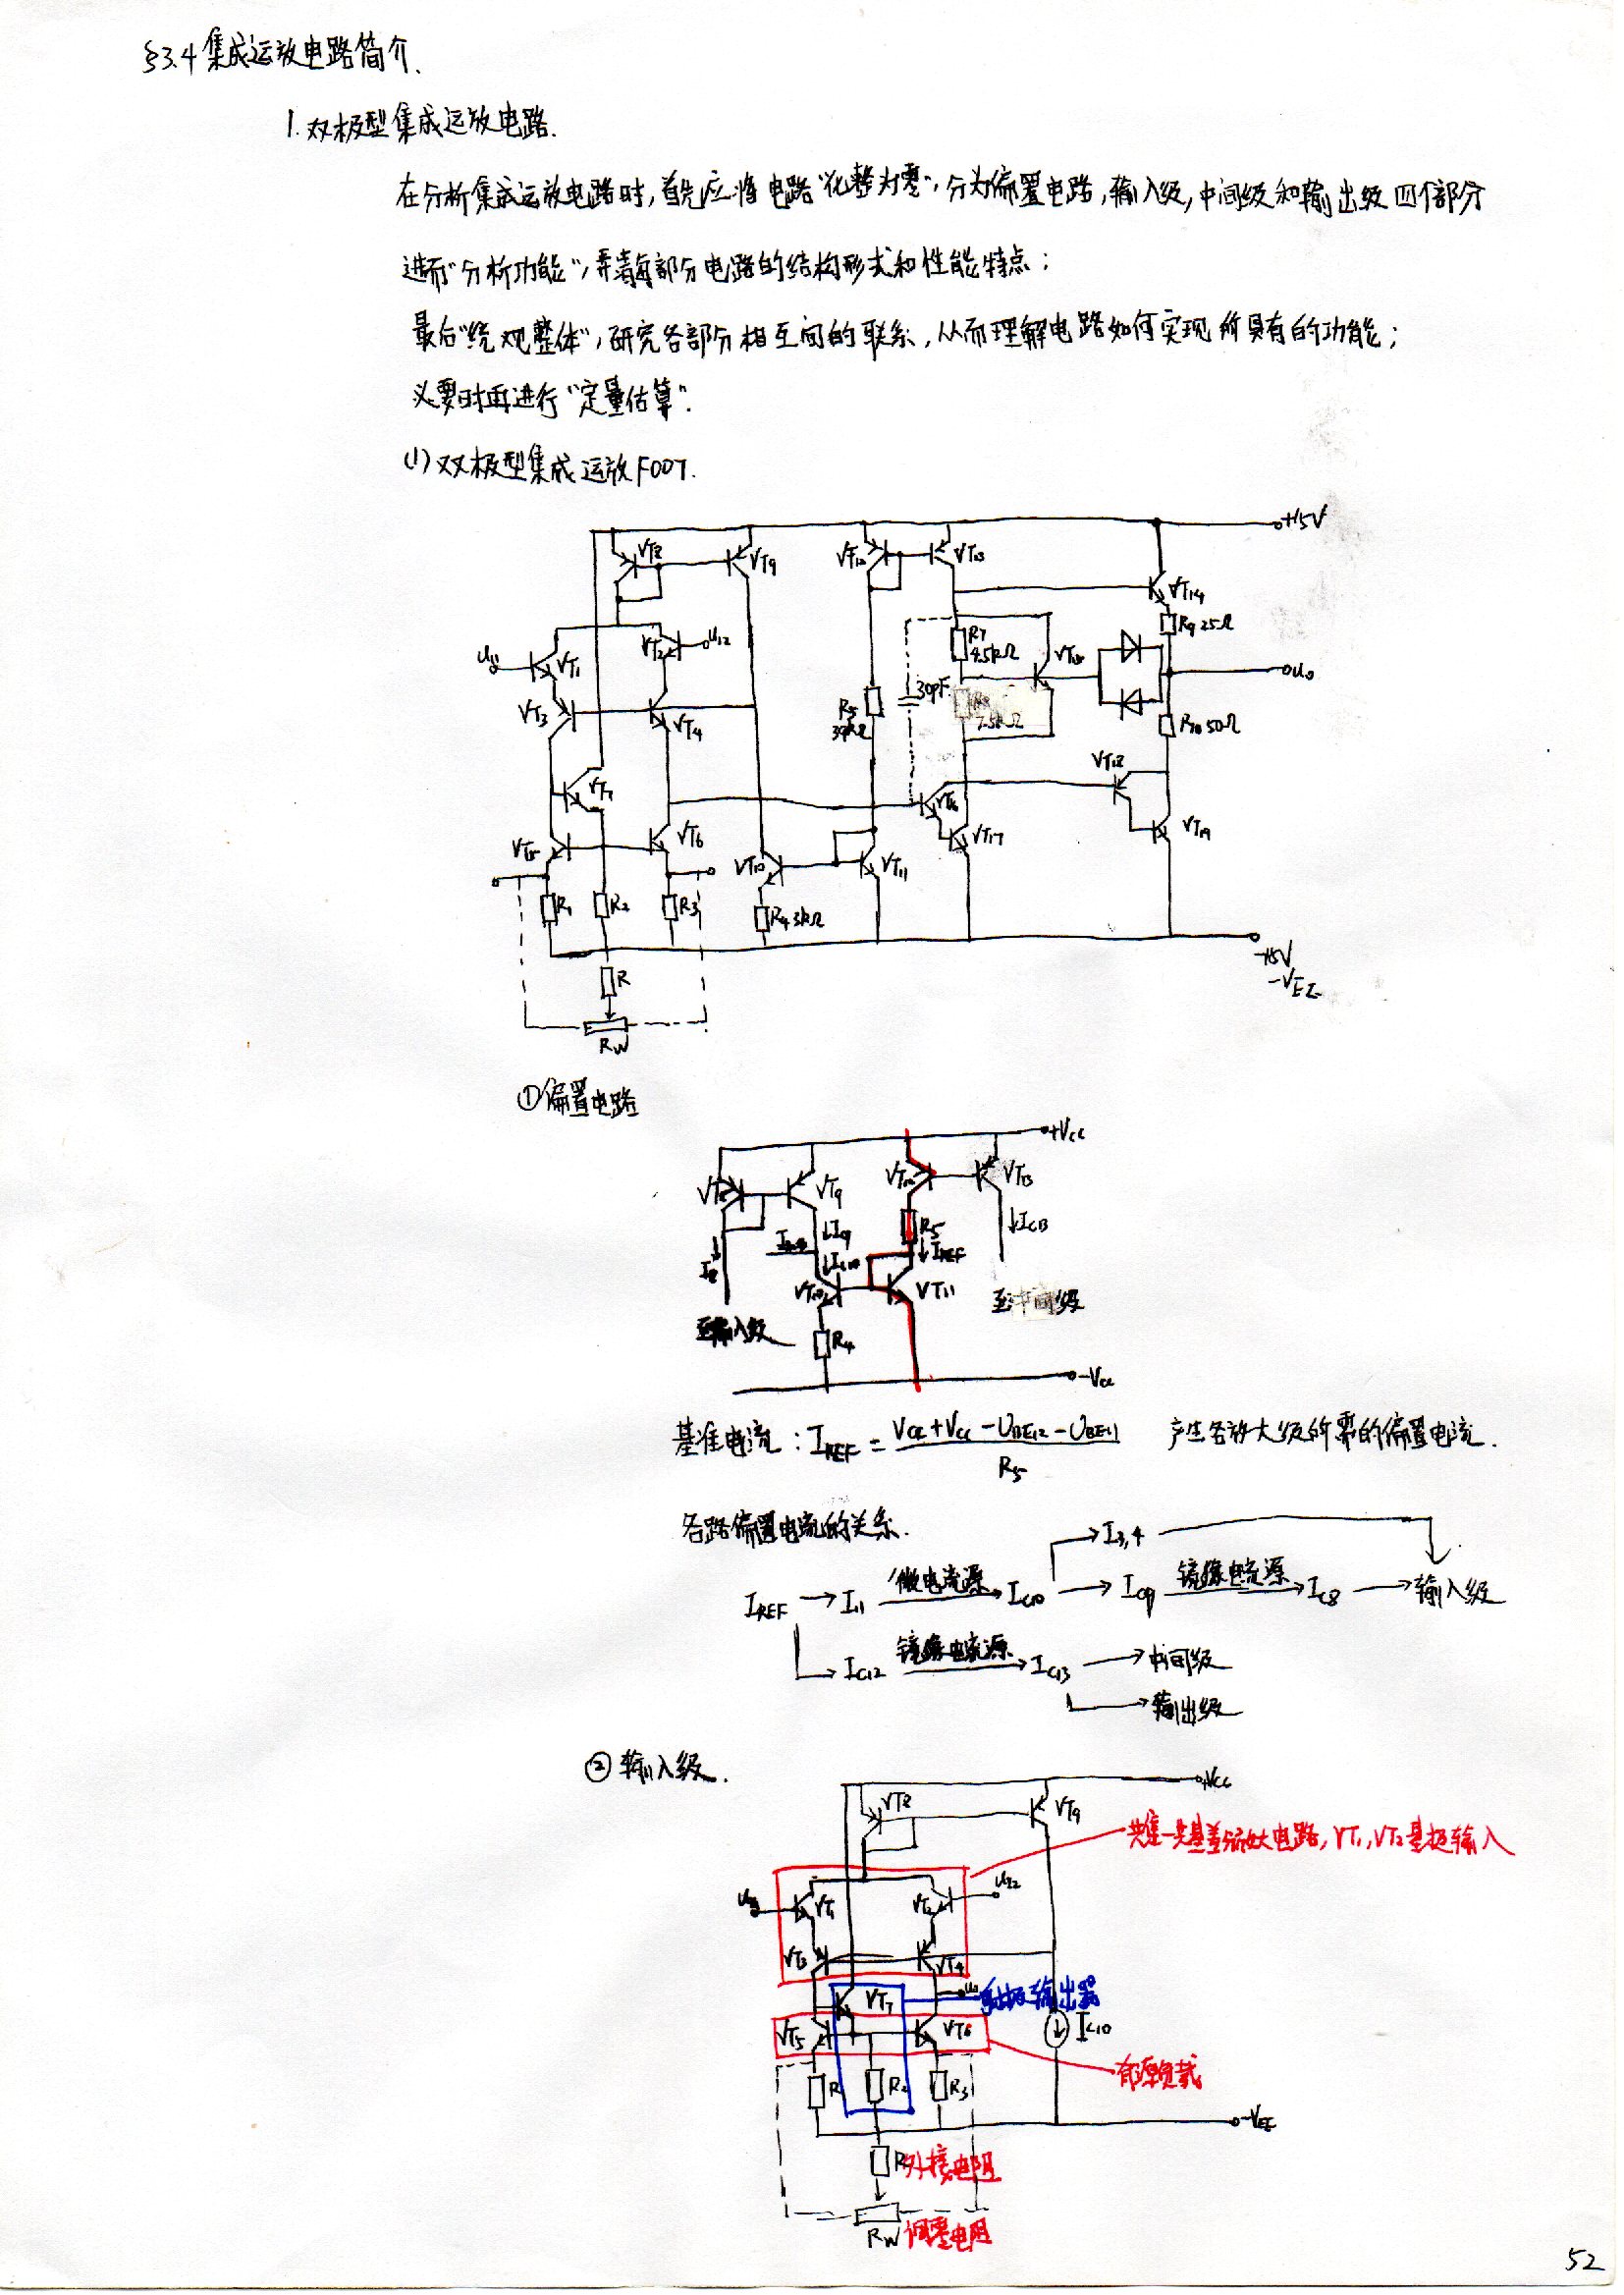 §3.4 集成运放电路简介.
1. 双极型集成运放电路.
在分析集成运放电路时,首先应将电路"化整为零",分为偏置电路,输入级,中间级和输出级四个部分
进而"分析功能",弄清每部分电路的结构形式和性能特点;
最后"统观整体",研究各部分相互间的联系,从而理解电路如何实现所具有的功能;
必要时再进行"定量估算".
(1) 双极型集成运放F007.
+15V
VT8 VT9 VT12 VT13
VT14
R9 25Ω
uI1 VT1 VT2 uI2
R7 4.5kΩ
uo
VT3 VT4 R5 39kΩ 30pF R8 7.5kΩ
R10 50Ω
VT7 VT18
VT17 VT19
VT5 VT6 VT10 VT11
R1 R2 R3 R4 3kΩ
-15V
-VEE
R
RW
①偏置电路
+VCC
VT9 VT12 VT13
IC13
R5
IREF
IC10
I8
VT10 VT11
至输入级 R4 至中间级
-VCC
基准电流: IREF = (VCC+VCC-UBE12-UBE11)/R5 产生各放大级所需的偏置电流.
各路偏置电流的关系.
I3,4
IREF → I11 微电流源 → IC10 → IC9 镜像电流源 → IC8 → 输入级
IC12 镜像电流源 → IC13 → 中间级
→ 输出级
② 输入级.
+VCC
VT8 VT9
共集-共基差分放大电路, VT1, VT2基极输入
VT1 VT2 uI2
VT3 VT4
VT7 射极输出器
VT5 VT6 IC10
有源负载
R R2 R3
-VEE
R 外接电阻
RW 调零电阻
52